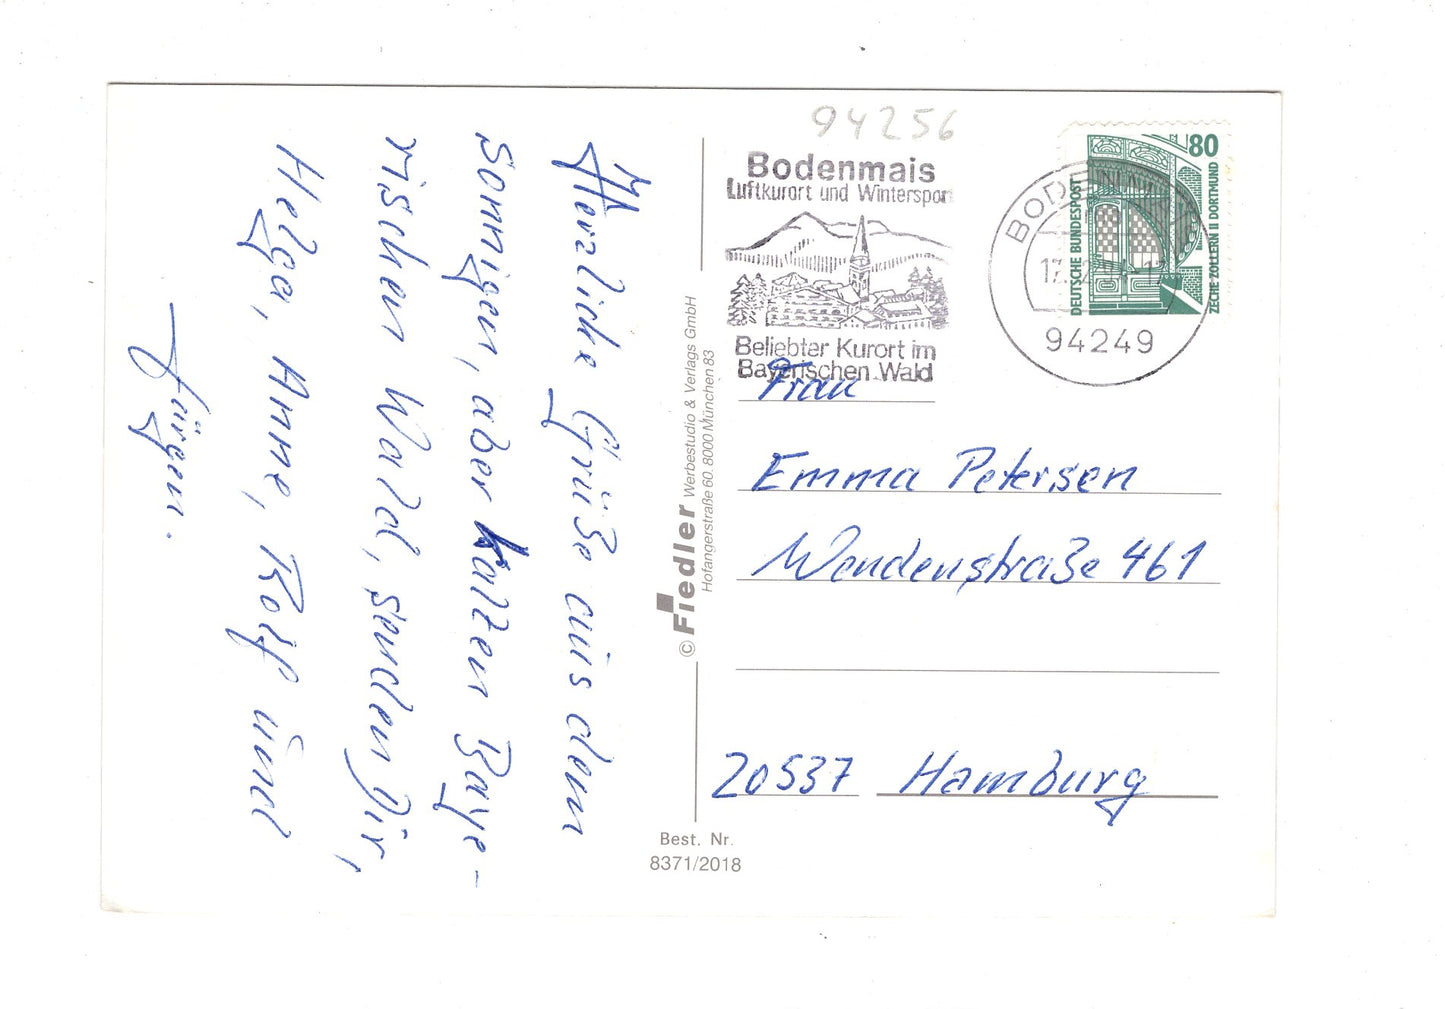 94256
Bodenmais
Luftkurort und Wintersport
Beliebter Kurort im
Bayerischen Wald
BODENMAIS
94249
80
DEUTSCHE BUNDESPOST
ZECHE ZOLLERN II DORTMUND
Herzliche Grüße aus dem
sonnigen, aber kalten Baye-
rischen Wald, senden Dir,
Helga, Anne, Rolf und
Jürgen.
© Fiedler Werbestudio & Verlags GmbH
Hofangerstraße 60. 8000 München 83
Frau
Emma Petersen
Wendenstraße 461
20537 Hamburg
Best. Nr.
8371/2018